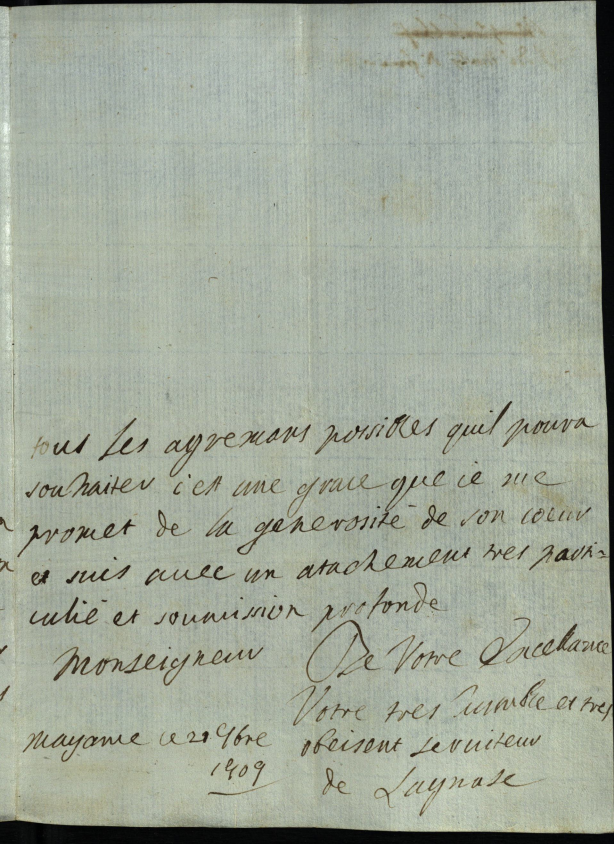 tous les agremans possibles quil poura
souhaiter c'est une grace que ie me
promet de la generosité de son coeur
et suis avec un atachement tres parti=
culié et soumission profonde
Monseigneur De Votre Excellance
Votre tres humble et tres
mayance ce 21 9bre obeisent serviteur
1709
de Lagnasc